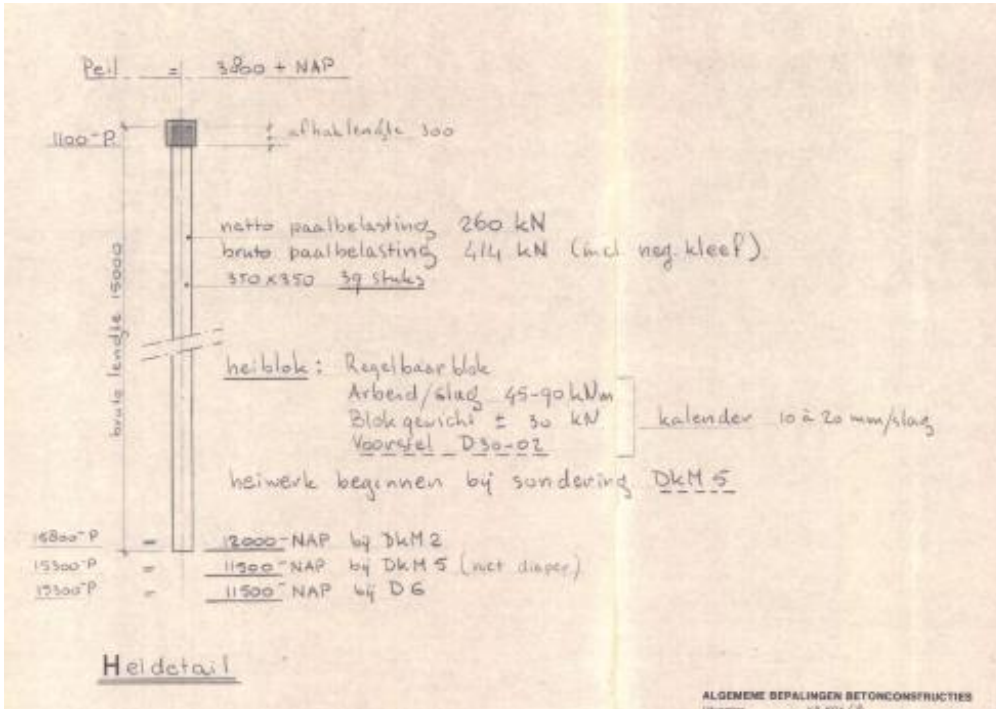 Peil = 3800 + NAP
1100-P.
afhaklengte 300
bruto lengte 15000
netto paalbelasting 260 kN
bruto paalbelasting 414 kN (incl neg. kleef)
350x350 39 stuks
heiblok: Regelbaar blok
Arbeid/slag 45-90 kNm
Blokgewicht ± 30 kN
Voorstel D30-02
kalender 10 à 20 mm/slag
heiwerk beginnen bij sondering DKM 5
15800-P = 12000-NAP bij DKM 2
15300-P = 11500-NAP bij DKM 5 (niet dieper)
15300-P = 11500-NAP bij D6
Heidetail
ALGEMENE BEPALINGEN BETONCONSTRUCTIES